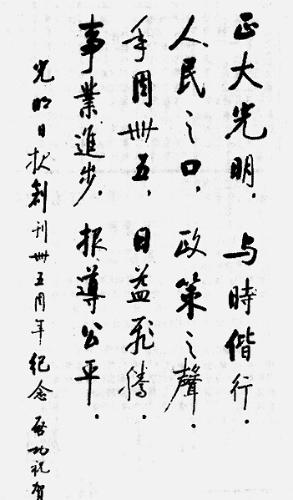 正大光明，与時偕行．
人民之口，政策之聲．
年周卅五，日益飛騰．
事業進步，报導公平．
光明日报創刊卅五周年纪念 启功祝賀